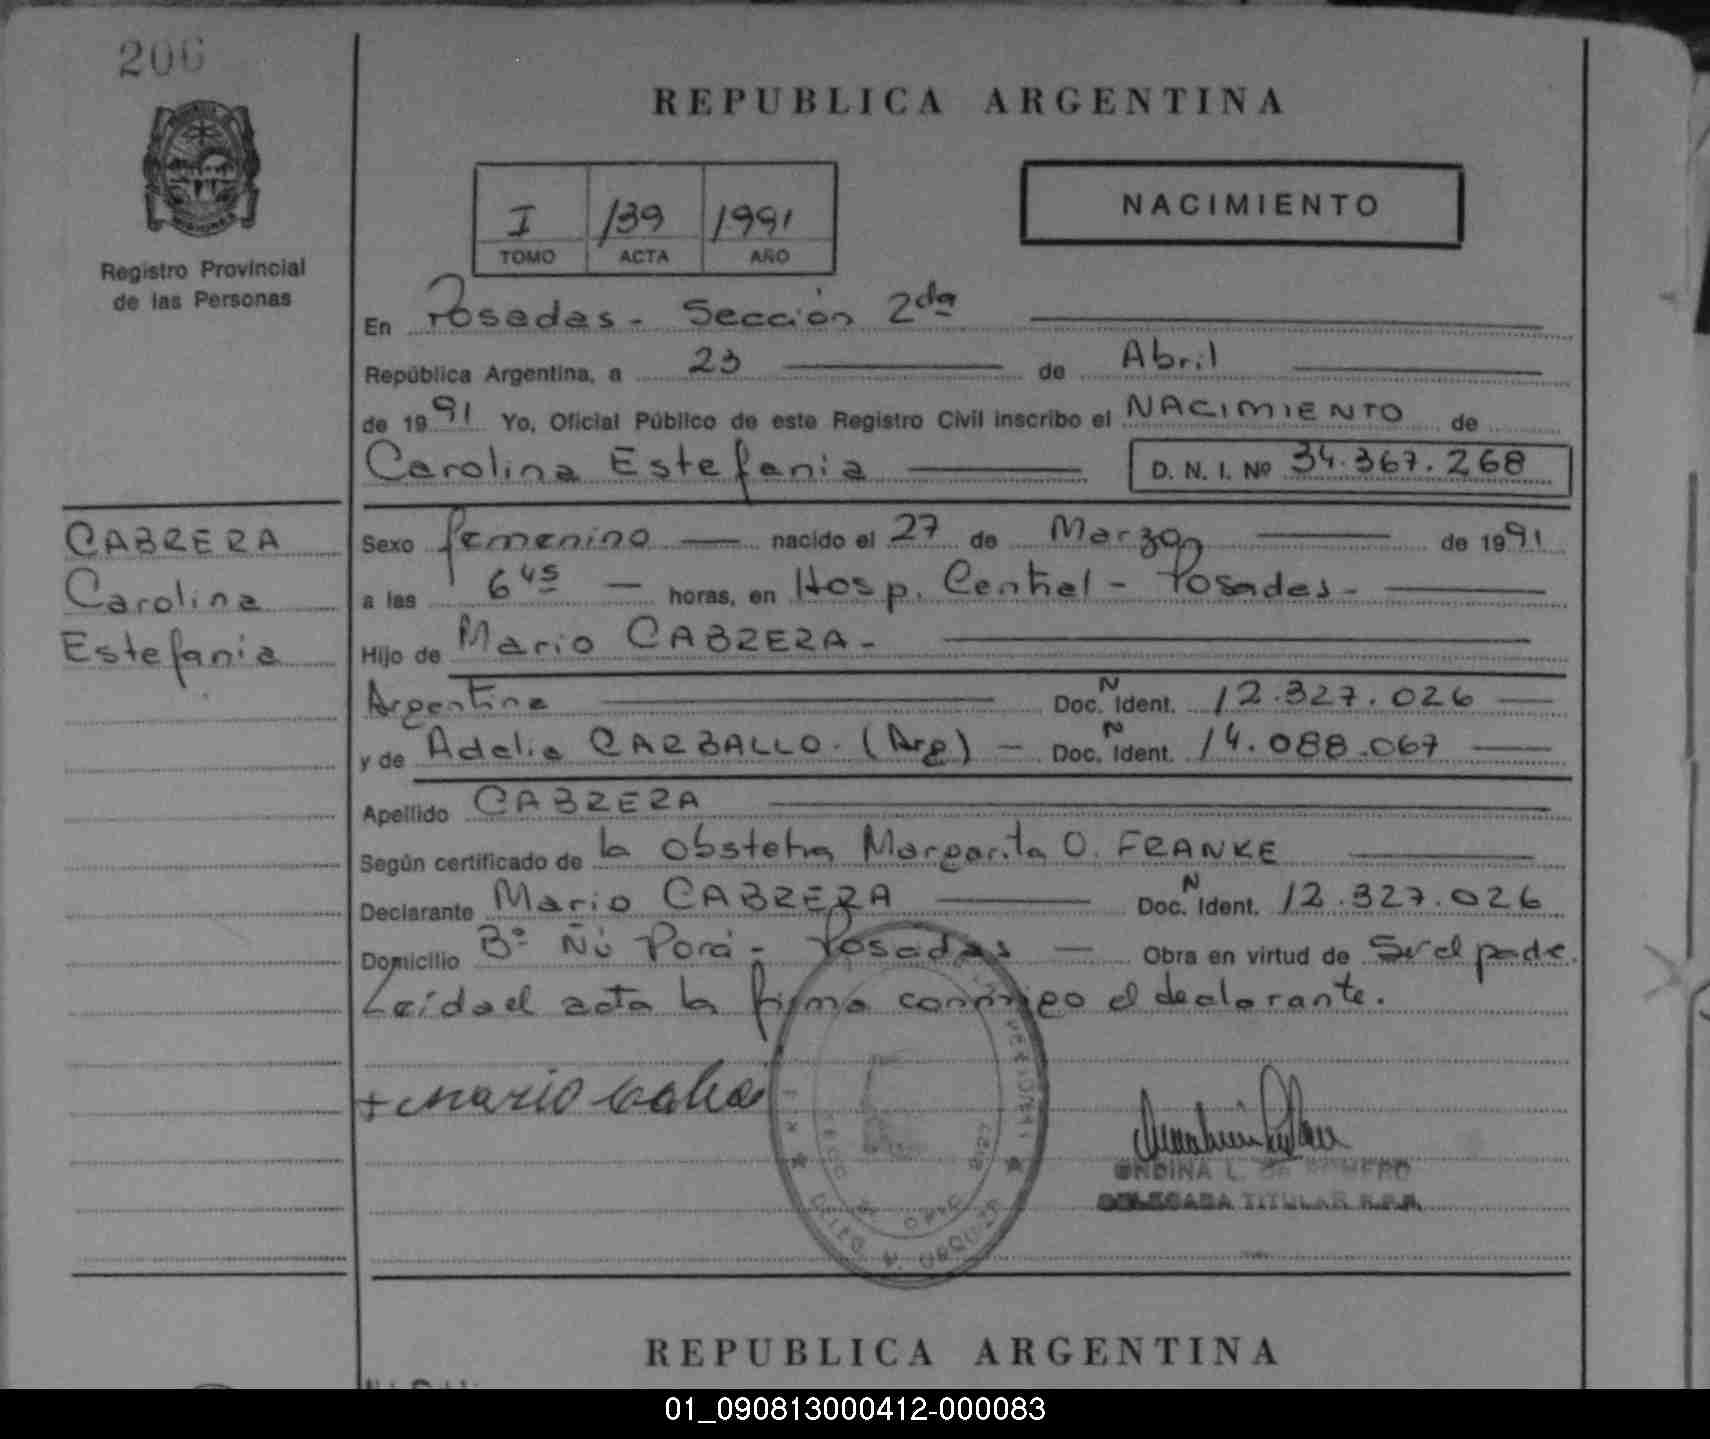 206
REPUBLICA ARGENTINA
I 139 1991
TOMO ACTA AÑO
NACIMIENTO
Registro Provincial
de las Personas
En Posadas - Sección 2da
República Argentina, a 23 de Abril
de 1991 Yo, Oficial Público de este Registro Civil inscribo el NACIMIENTO de
Carolina Estefania D. N. I. Nº 34.367.268
CABRERA
Carolina
Estefania
Sexo femenino nacido el 27 de Marzo de 1991
a las 6 45 horas, en Hosp. Central - Posadas -
Hijo de Mario CABRERA -
Argentina Doc. N Ident. 12.327.026
y de Adelia CARBALLO. (Arg) - Doc. N Ident. 14.088.067
Apellido CABRERA
Según certificado de la obstetra Margarita O. FRANKE
Declarante Mario CABRERA Doc. N Ident. 12.327.026
Domicilio Bº Ñú Porá - Posadas Obra en virtud de Ser el padre.
Leída el acta la firma conmigo el declarante.
+ Mario
ONDINA L. DE ROMERO
DELEGADA TITULAR R.P.P.
REPUBLICA ARGENTINA
01_090813000412-000083